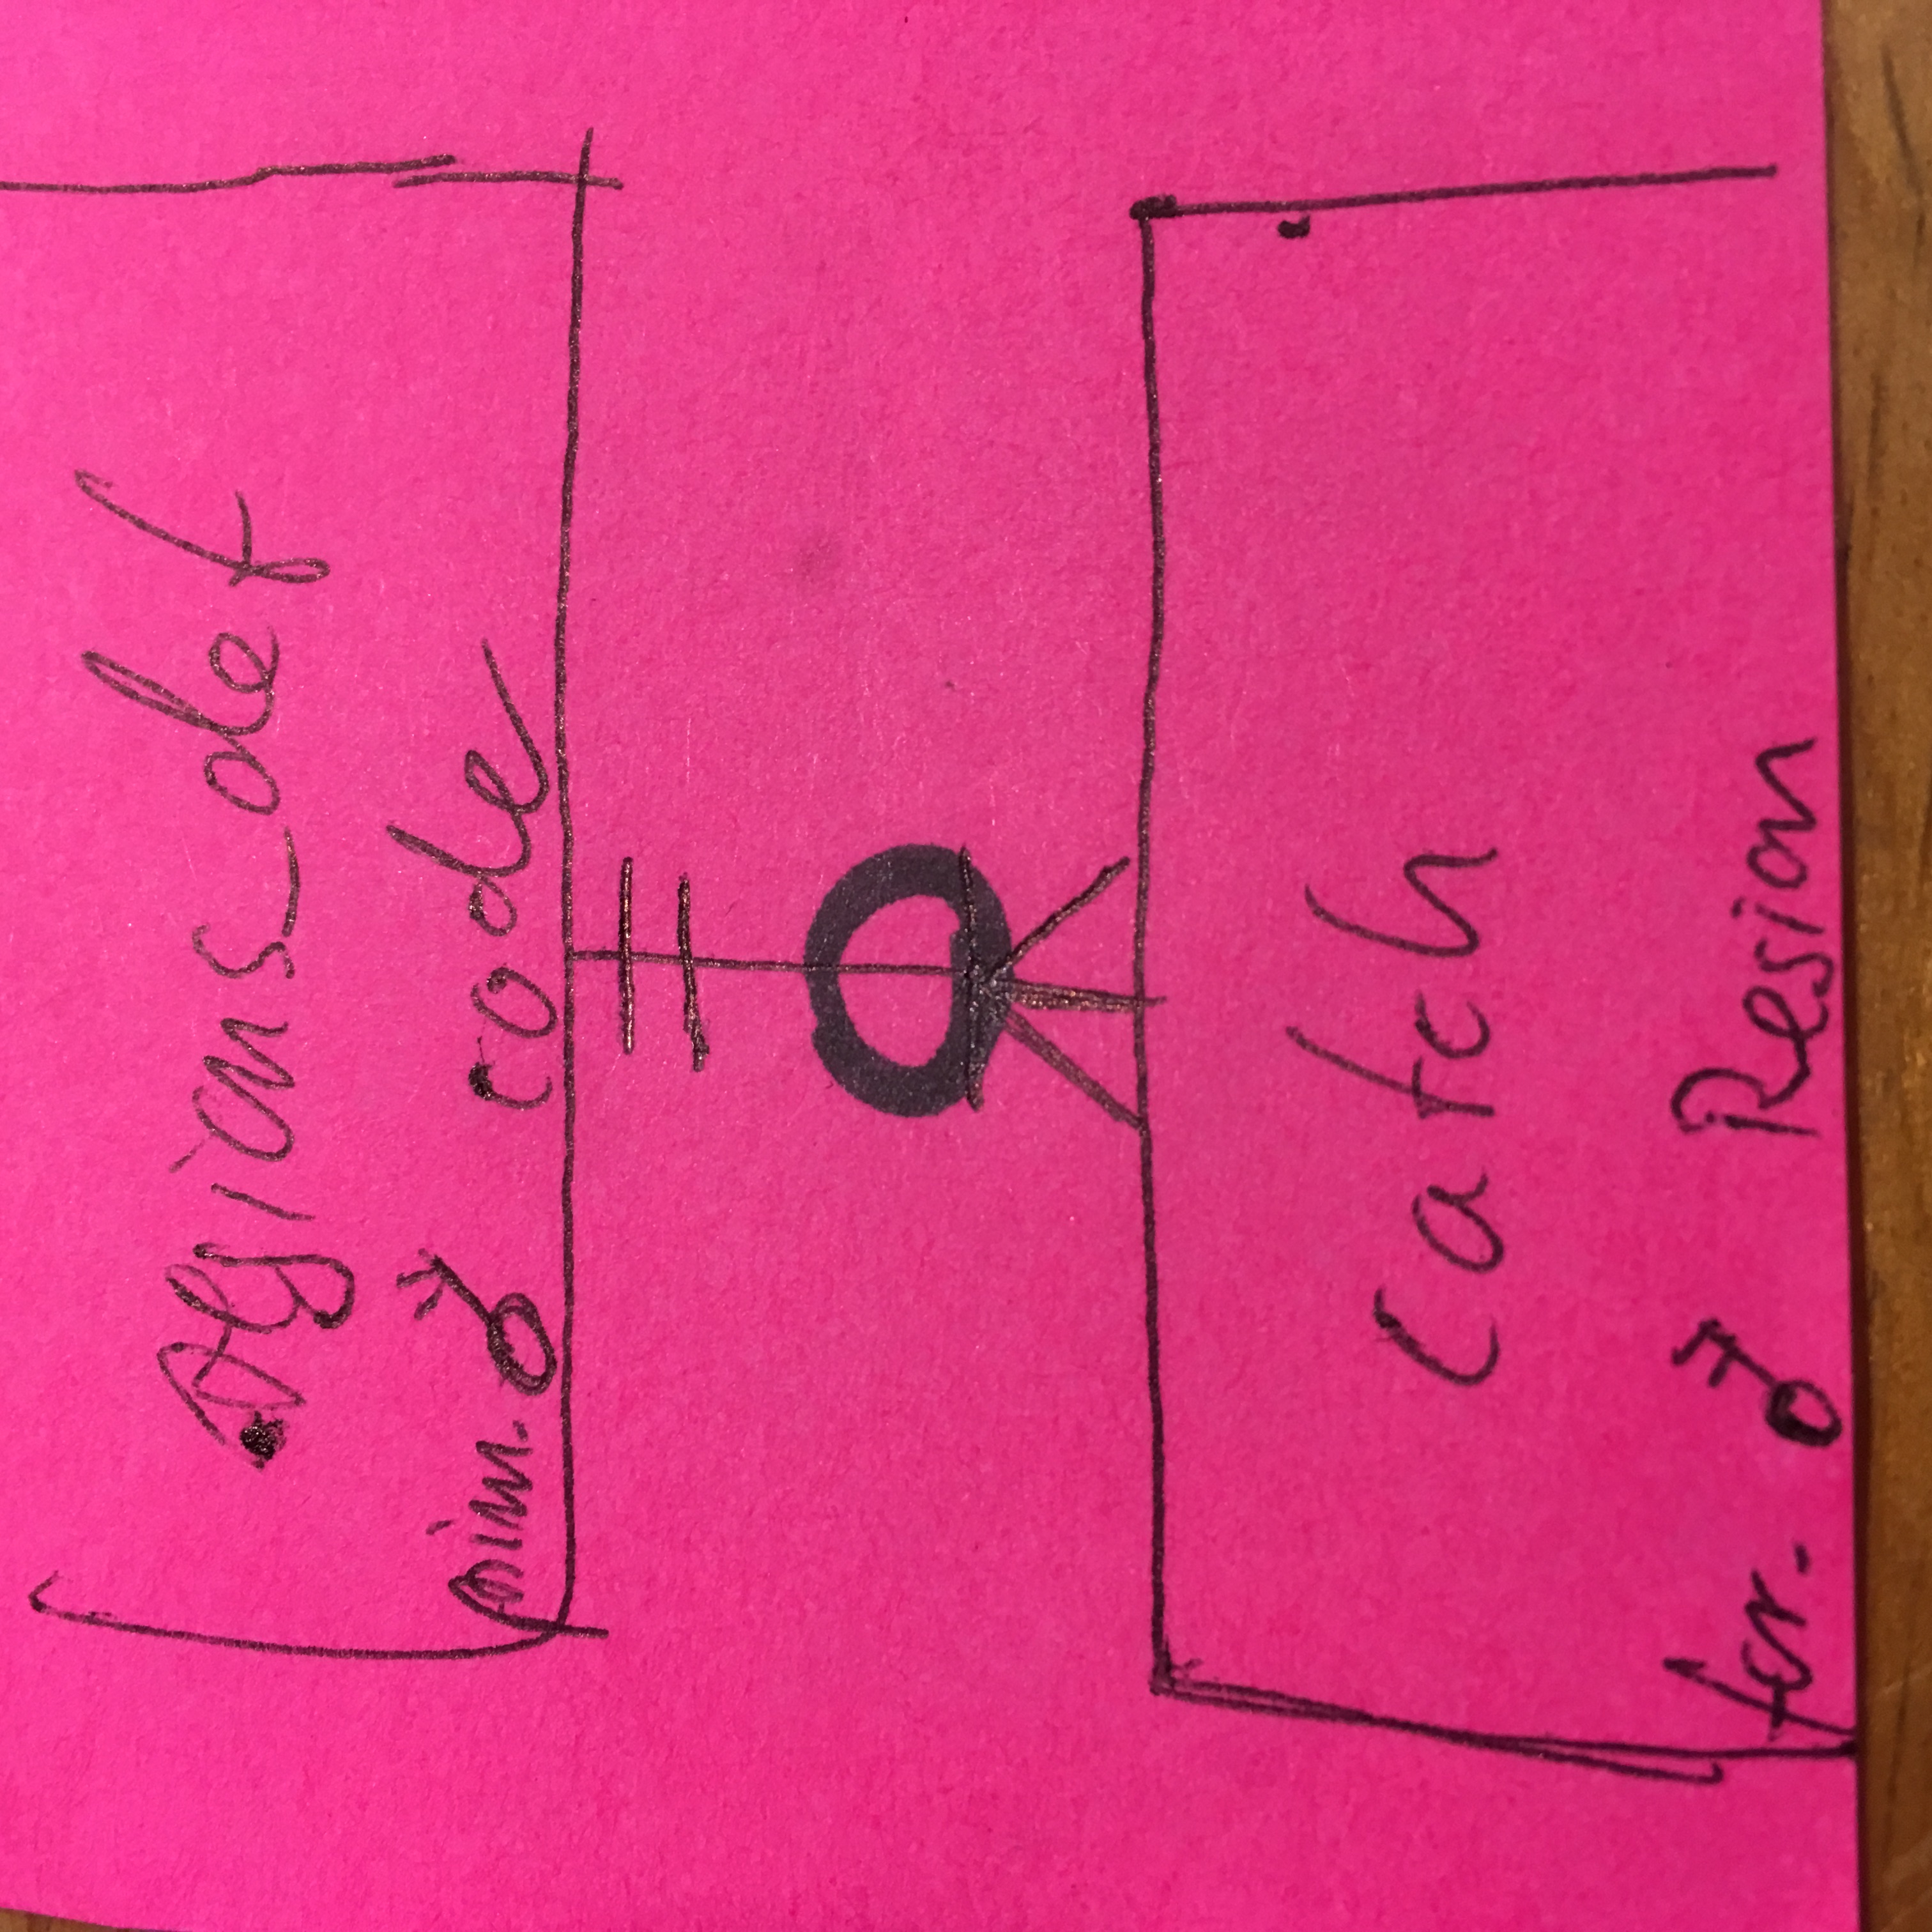 regions_def
prim. code
catch
for. Region